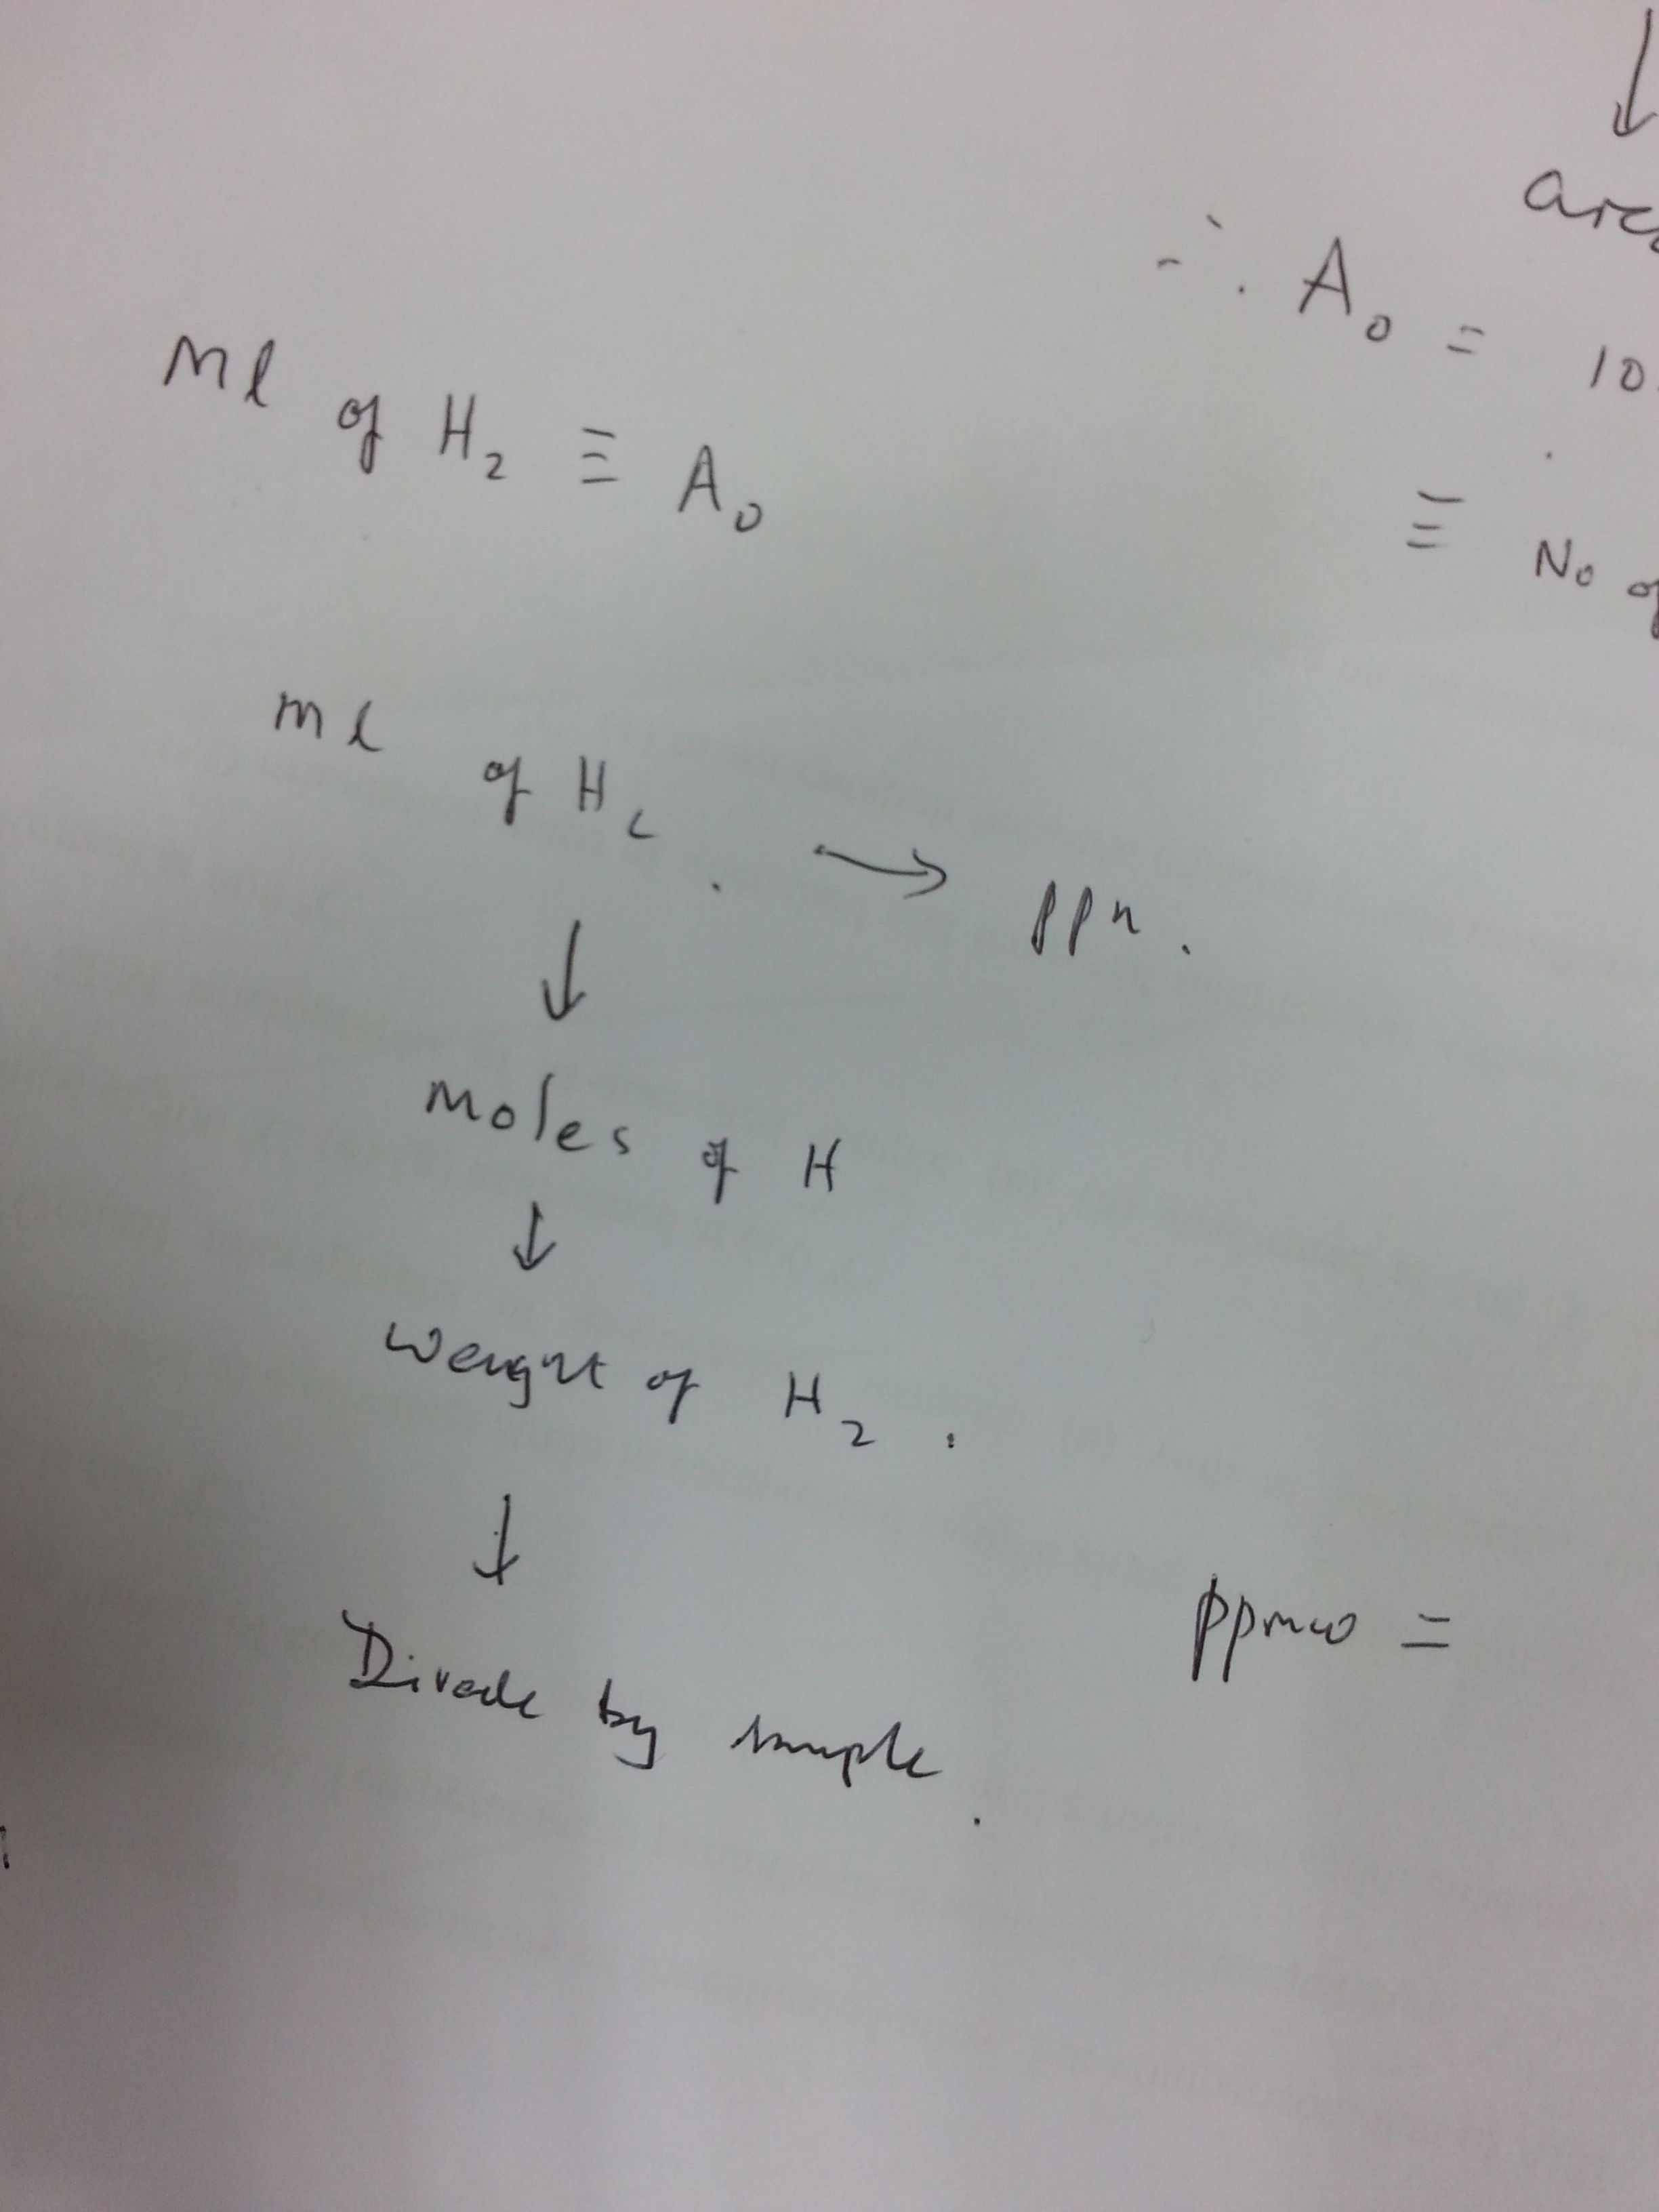 ∴ A₀ = 10
ml of H₂ ≡ A₀
≡ No of
ml of H₂ . → ppm .
↓
moles of H
↓
weight of H₂ .
↓
ppmw =
Divide by sample .